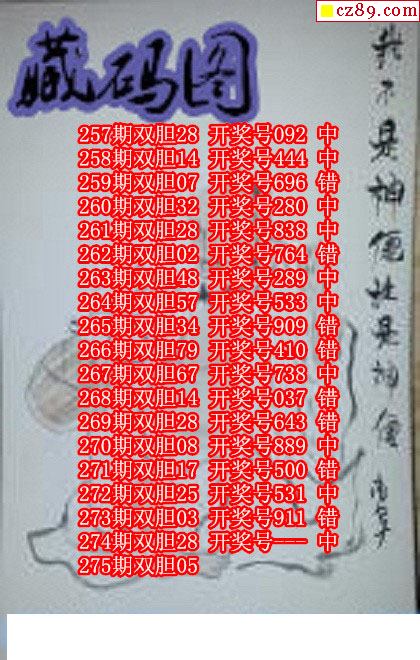 cz89.com
藏码图
257期双胆28 开奖号092 中
258期双胆14 开奖号444 中
259期双胆07 开奖号696 错
260期双胆32 开奖号280 中
261期双胆28 开奖号838 中
262期双胆02 开奖号764 错
263期双胆48 开奖号289 中
264期双胆57 开奖号533 中
265期双胆34 开奖号909 错
266期双胆79 开奖号410 错
267期双胆67 开奖号738 中
268期双胆14 开奖号037 错
269期双胆28 开奖号643 错
270期双胆08 开奖号889 中
271期双胆17 开奖号500 错
272期双胆25 开奖号531 中
273期双胆03 开奖号911 错
274期双胆28 开奖号--- 中
275期双胆05
我不是神
是神